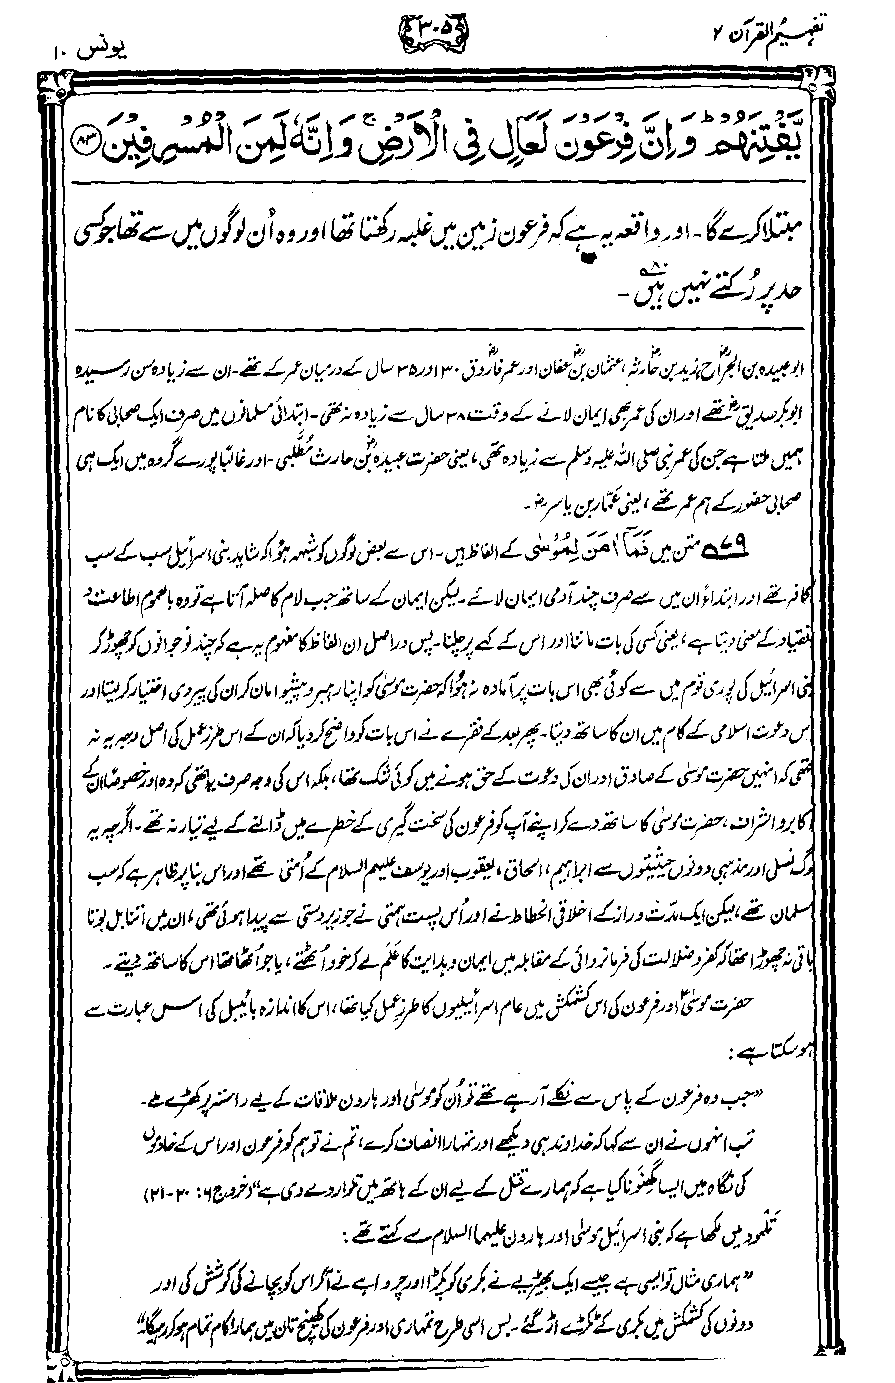 تفہیم القرآن ۲
۳۰۵
یونس ۱۰
يَّفْتِنَهُمْ ؕ وَ اِنَّ فِرْعَوْنَ لَعَالٍ فِی الْاَرْضِ ۚ وَ اِنَّهٗ لَمِنَ الْمُسْرِفِيْنَ ﴿۸۳﴾
مبتلا کرے گا۔ اور واقعہ یہ ہے کہ فرعون زمین میں غلبہ رکھتا تھا اور وہ اُن لوگوں میں سے تھا جو کسی
حد پر رُکتے نہیں ہیں۸۰۔
ابوعبیدہ بن الجراحؓ، زید بن حارثہؓ، عثمان بن عفانؓ اور عمر فاروقؓ ۳۰ اور ۳۵ سال کے درمیان عمر کے تھے۔ ان سے زیادہ سن رسیدہ
ابوبکر صدیقؓ تھے اور ان کی عمر بھی ایمان لانے کے وقت ۳۸ سال سے زیادہ نہ تھی۔ ابتدائی مسلمانوں میں صرف ایک صحابی کا نام
ہمیں ملتا ہے جن کی عمر نبی صلی اللہ علیہ وسلم سے زیادہ تھی، یعنی حضرت عبیدہؓ بن حارث مُطَّلِبی۔ اور غالباً پورے گروہ میں ایک ہی
صحابی حضور کے ہم عمر تھے، یعنی عمّار بن یاسرؓ۔
۷۹؎ متن میں فَمَآ اٰمَنَ لِمُوْسٰٓی کے الفاظ ہیں۔ اس سے بعض لوگوں کو شبہہ ہوا کہ شاید بنی اسرائیل سب کے سب
کافر تھے اور ابتداءً ان میں سے صرف چند آدمی ایمان لائے۔ لیکن ایمان کے ساتھ جب لام کا صلہ آتا ہے تو وہ بالعموم اطاعت و
انقیاد کے معنی دیتا ہے، یعنی کسی کی بات ماننا اور اس کے کہے پر چلنا۔ پس دراصل ان الفاظ کا مفہوم یہ ہے کہ چند نوجوانوں کو چھوڑ کر
بنی اسرائیل کی پوری قوم میں سے کوئی بھی اس بات پر آمادہ نہ ہوا کہ حضرت موسیٰ کو اپنا رہبر و پیشوا مان کر ان کی پیروی اختیار کر لیتا اور
اس دعوت اسلامی کے کام میں ان کا ساتھ دیتا۔ پھر بعد کے فقرے نے اس بات کو واضح کر دیا کہ ان کے اس طرز عمل کی اصل وجہ یہ نہ
تھی کہ انہیں حضرت موسیٰ کے صادق اور ان کی دعوت کے حق ہونے میں کوئی شک تھا، بلکہ اس کی وجہ صرف یہ تھی کہ وہ اور خصوصاً ان کے
اکابر و اشراف، حضرت موسیٰ کا ساتھ دے کر اپنے آپ کو فرعون کی سخت گیری کے خطرے میں ڈالنے کے لیے تیار نہ تھے۔ اگرچہ یہ
لوگ نسلی اور مذہبی دونوں حیثیتوں سے ابراہیم، اسحاق، یعقوب اور یوسف علیہم السلام کے اُمتی تھے اور اس بنا پر ظاہر ہے کہ سب
مسلمان تھے، لیکن ایک مدّت دراز کے اخلاقی انحطاط نے اور اُس پست ہمتی نے جو زیردستی سے پیدا ہوئی تھی، ان میں اتنا بل بوتا
باقی نہ چھوڑا تھا کہ کفر و ضلالت کی فرمانروائی کے مقابلہ میں ایمان و ہدایت کا عَلَم لے کر خود اُٹھتے، یا جو اُٹھا تھا اس کا ساتھ دیتے۔
حضرت موسیٰؑ اور فرعون کی اس کشمکش میں عام اسرائیلیوں کا طرزِ عمل کیا تھا، اس کا اندازہ بائیبل کی اس عبارت سے
ہو سکتا ہے:
”جب وہ فرعون کے پاس سے نکلے آ رہے تھے تو اُن کو موسیٰ اور ہارون ملاقات کے لیے راستہ پر کھڑے ملے۔
تب انہوں نے ان سے کہا کہ خداوند ہی دیکھے اور تمہارا انصاف کرے، تم نے تو ہم کو فرعون اور اس کے خادموں
کی نگاہ میں ایسا گھِنَونا کیا ہے کہ ہمارے قتل کے لیے ان کے ہاتھ میں تلوار دے دی ہے“ (خروج ۶: ۲۰-۲۱)
تَلْمُود میں لکھا ہے کہ بنی اسرائیل موسیٰ اور ہارون علیہما السلام سے کہتے تھے:
”ہماری مثال تو ایسی ہے جیسے ایک بھیڑیے نے بکری کو پکڑا اور چرواہے نے آ کر اس کو بچانے کی کوشش کی اور
دونوں کی کشمکش میں بکری کے ٹکڑے اڑ گئے۔ بس اسی طرح تمہاری اور فرعون کی کھینچ تان میں ہمارا کام تمام ہو کر رہیگا۔“